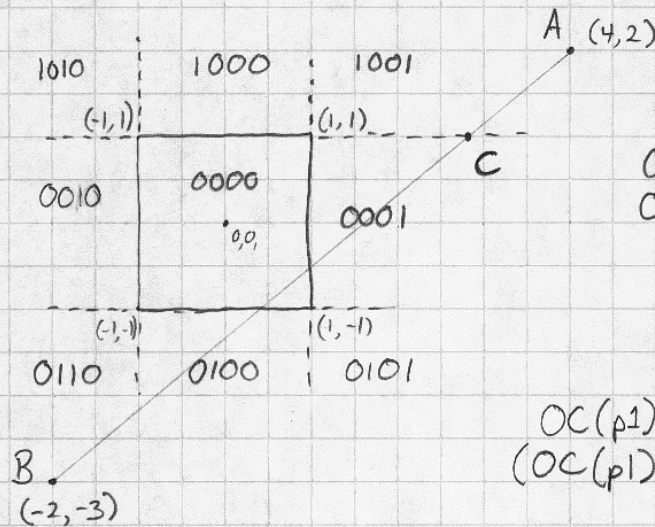 A (4,2)
1010 1000 1001
(-1,1) (1,1)
C
0010 0000 0001
0,0,
(-1,-1) (1,-1)
0110 0100 0101
OC(p1)
(OC(p1)
B
(-2,-3)